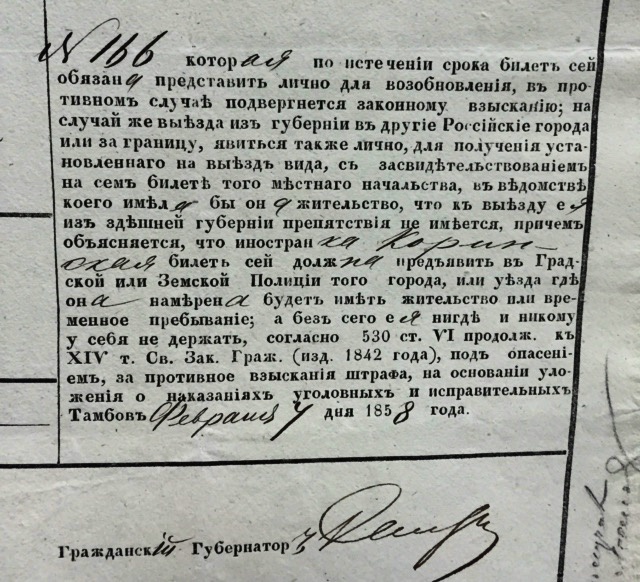 № 166 которая по истеченіи срока билетъ сей
обязана представить лично для возобновленія, въ про-
тивномъ случаѣ подвергнется законному взысканію; на
случай же выѣзда изъ губерніи въ другіе Россійскіе города
или за границу, явиться также лично, для полученія уста-
новленнаго на выѣздъ вида, съ засвидѣтельствованіемъ
на семъ билетѣ того мѣстнаго начальства, въ вѣдомствѣ
коего имѣла бы она жительство, что къ выѣзду ея
изъ здѣшней губерніи препятствія не имѣется, причемъ
объясняется, что иностранка Корин-
ская билетъ сей должна предъявить въ Град-
ской или Земской Полиціи того города, или уѣзда гдѣ
она намѣрена будетъ имѣть жительство или вре-
менное пребываніе; а безъ сего ея нигдѣ и никому
у себя не держать, согласно 530 ст. VI продолж. къ
XIV т. Св. Зак. Граж. (изд. 1842 года), подъ опасені-
емъ, за противное взысканія штрафа, на основаніи уло-
женія о наказаніяхъ уголовныхъ и исправительныхъ
Тамбовъ Февраля 7 дня 1858 года.
Гражданскій Губернаторъ